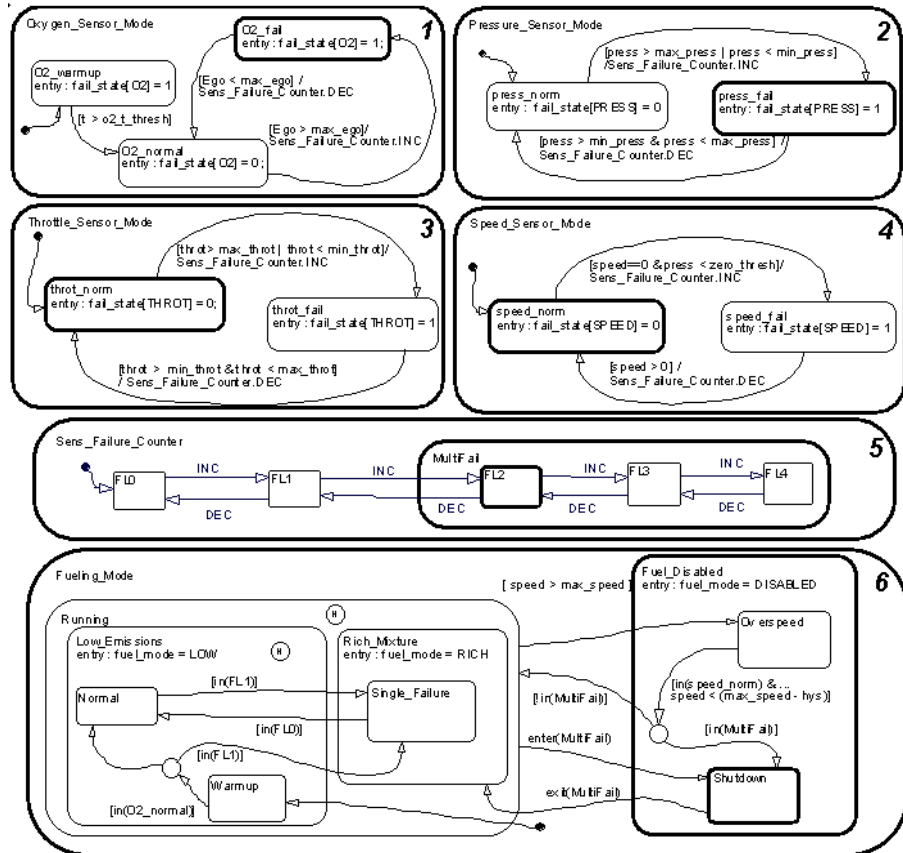 Oxygen_Sensor_Mode
1
O2_fail
entry : fail_state[O2] = 1;
O2_warmup
entry : fail_state[O2] = 1
[t > o2_t_thresh]
[Ego < max_ego] /
Sens_Failure_Counter.DEC
[Ego > max_ego]/
Sens_Failure_Counter.INC
O2_normal
entry : fail_state[O2] = 0;
Pressure_Sensor_Mode
2
[press > max_press | press < min_press]
/Sens_Failure_Counter.INC
press_norm
entry : fail_state[PRESS] = 0
press_fail
entry : fail_state[PRESS] = 1
[press > min_press & press < max_press] /
Sens_Failure_Counter.DEC
Throttle_Sensor_Mode
3
[throt> max_throt | throt < min_throt]/
Sens_Failure_Counter.INC
throt_norm
entry : fail_state[THROT] = 0;
throt_fail
entry : fail_state[THROT] = 1
[throt > min_throt &throt < max_throt]
/ Sens_Failure_Counter.DEC
Speed_Sensor_Mode
4
[speed==0 &press < zero_thresh]/
Sens_Failure_Counter.INC
speed_norm
entry : fail_state[SPEED] = 0
speed_fail
entry : fail_state[SPEED] = 1
[speed >0] /
Sens_Failure_Counter.DEC
Sens_Failure_Counter
5
MultiFail
INC INC INC INC
FL0 FL1 FL2 FL3 FL4
DEC DEC DEC DEC
Fueling_Mode
6
[ speed > max_speed ]
Fuel_Disabled
entry : fuel_mode = DISABLED
Running
H
Low_Emissions
entry : fuel_mode = LOW
H
Rich_Mixture
entry : fuel_mode = RICH
Overspeed
[in(FL1)]
Normal
Single_Failure
[in(FL0)]
[in(speed_norm) &...
speed < (max_speed - hys)]
[!in(MultiFail)]
[in(MultiFail)]
[in(FL1)]
enter(MultiFail)
Warmup
Shutdown
[in(O2_normal)]
exit(MultiFail)